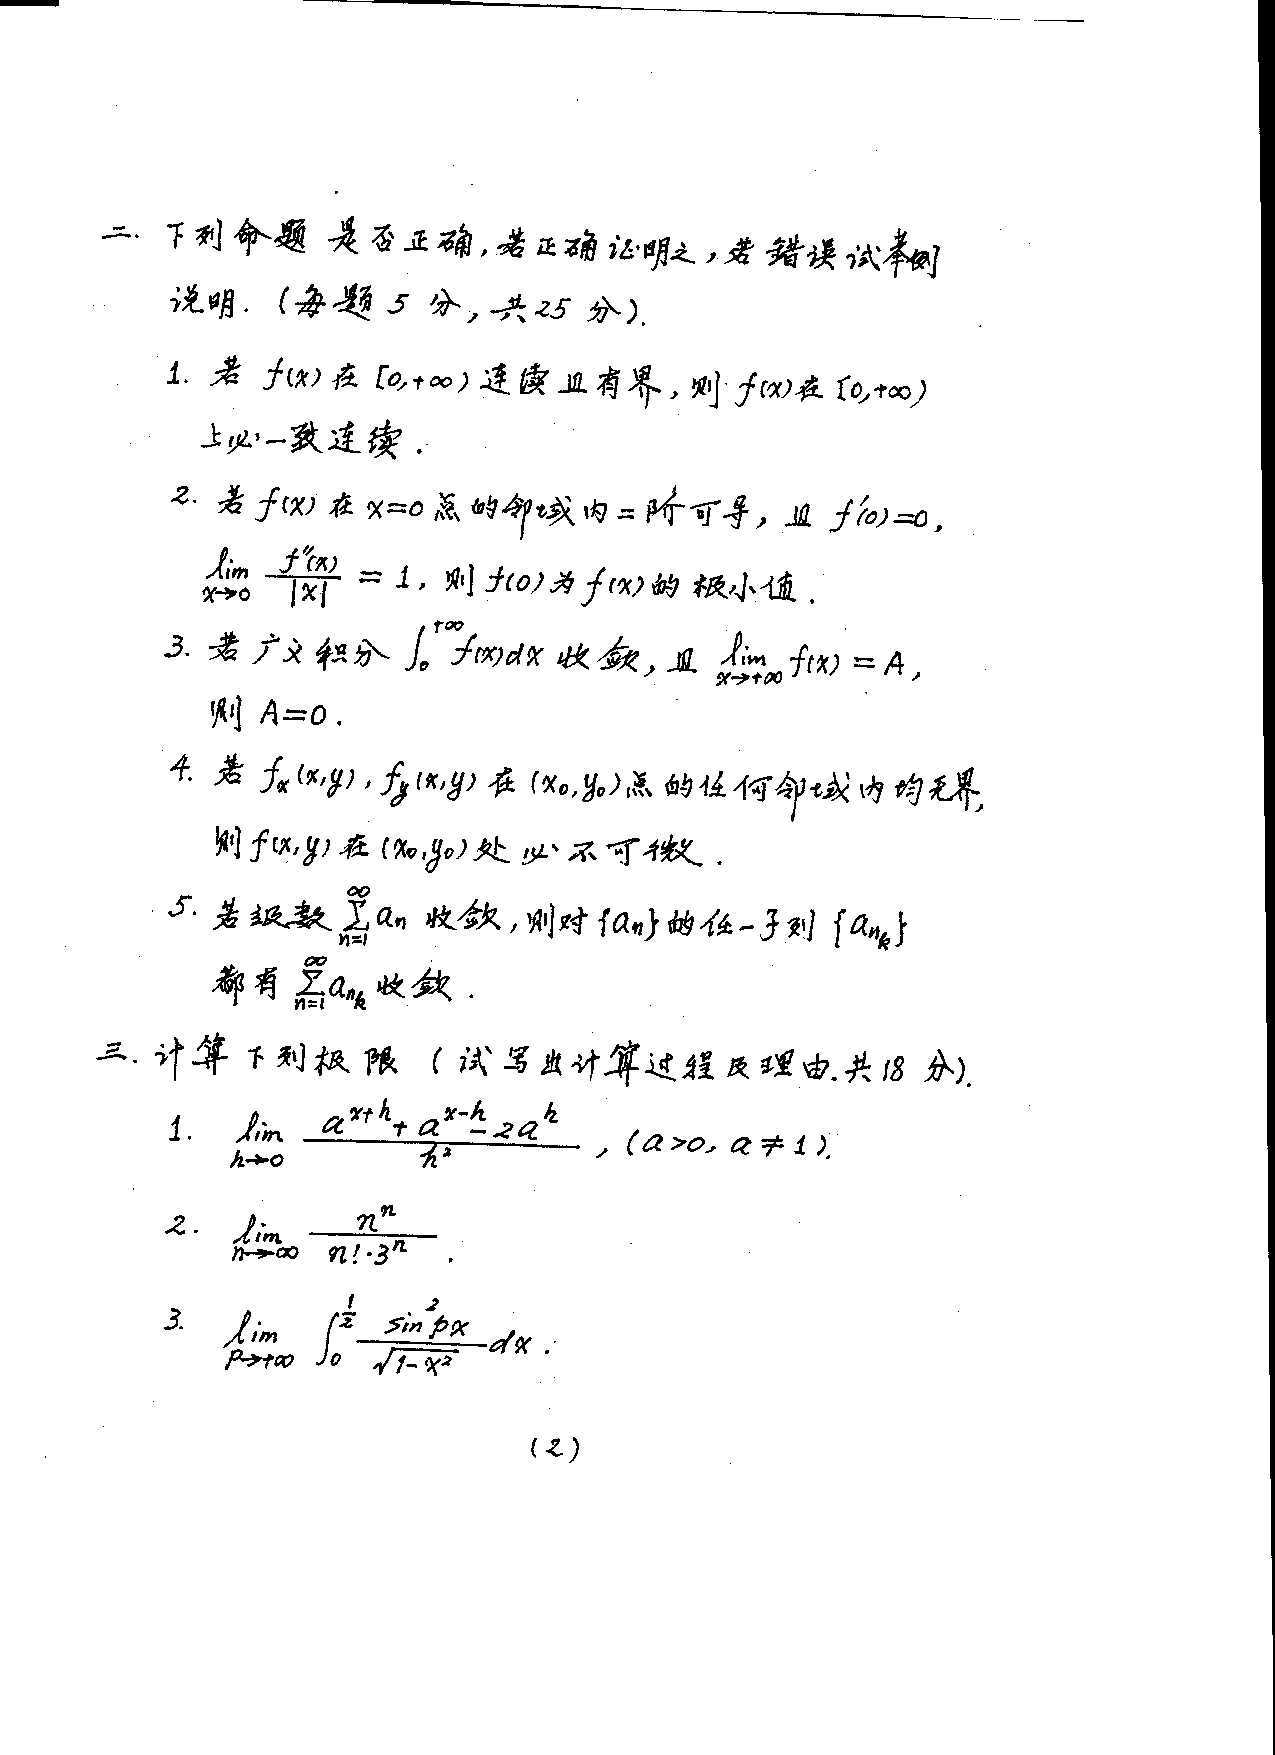 二. 下列命题是否正确,若正确证明之,若错误试举例
说明.(每题5分,共25分).
1. 若 f(x) 在 [0,+∞) 连续且有界, 则 f(x) 在 [0,+∞)
上必一致连续.
2. 若 f(x) 在 x=0 点的邻域内二阶可导, 且 f'(0)=0,
lim_{x→0} f''(x)/|x| = 1, 则 f(0) 为 f(x) 的极小值.
3. 若广义积分 ∫_0^{+∞} f(x)dx 收敛, 且 lim_{x→+∞} f(x) = A,
则 A=0.
4. 若 f_x(x,y), f_y(x,y) 在 (x_0,y_0) 点的任何邻域内均无界,
则 f(x,y) 在 (x_0,y_0) 处必不可微.
5. 若级数 ∑_{n=1}^{∞} a_n 收敛, 则对 {a_n} 的任一子列 {a_{n_k}}
都有 ∑_{n=1}^{∞} a_{n_k} 收敛.
三. 计算下列极限 (试写出计算过程及理由.共18分).
1. lim_{h→0} (a^{x+h} + a^{x-h} - 2a^h)/h², (a>0, a≠1).
2. lim_{n→∞} n^n/(n!·3^n).
3. lim_{p→+∞} ∫_0^{1/2} sin²px/√(1-x²) dx.
(2)